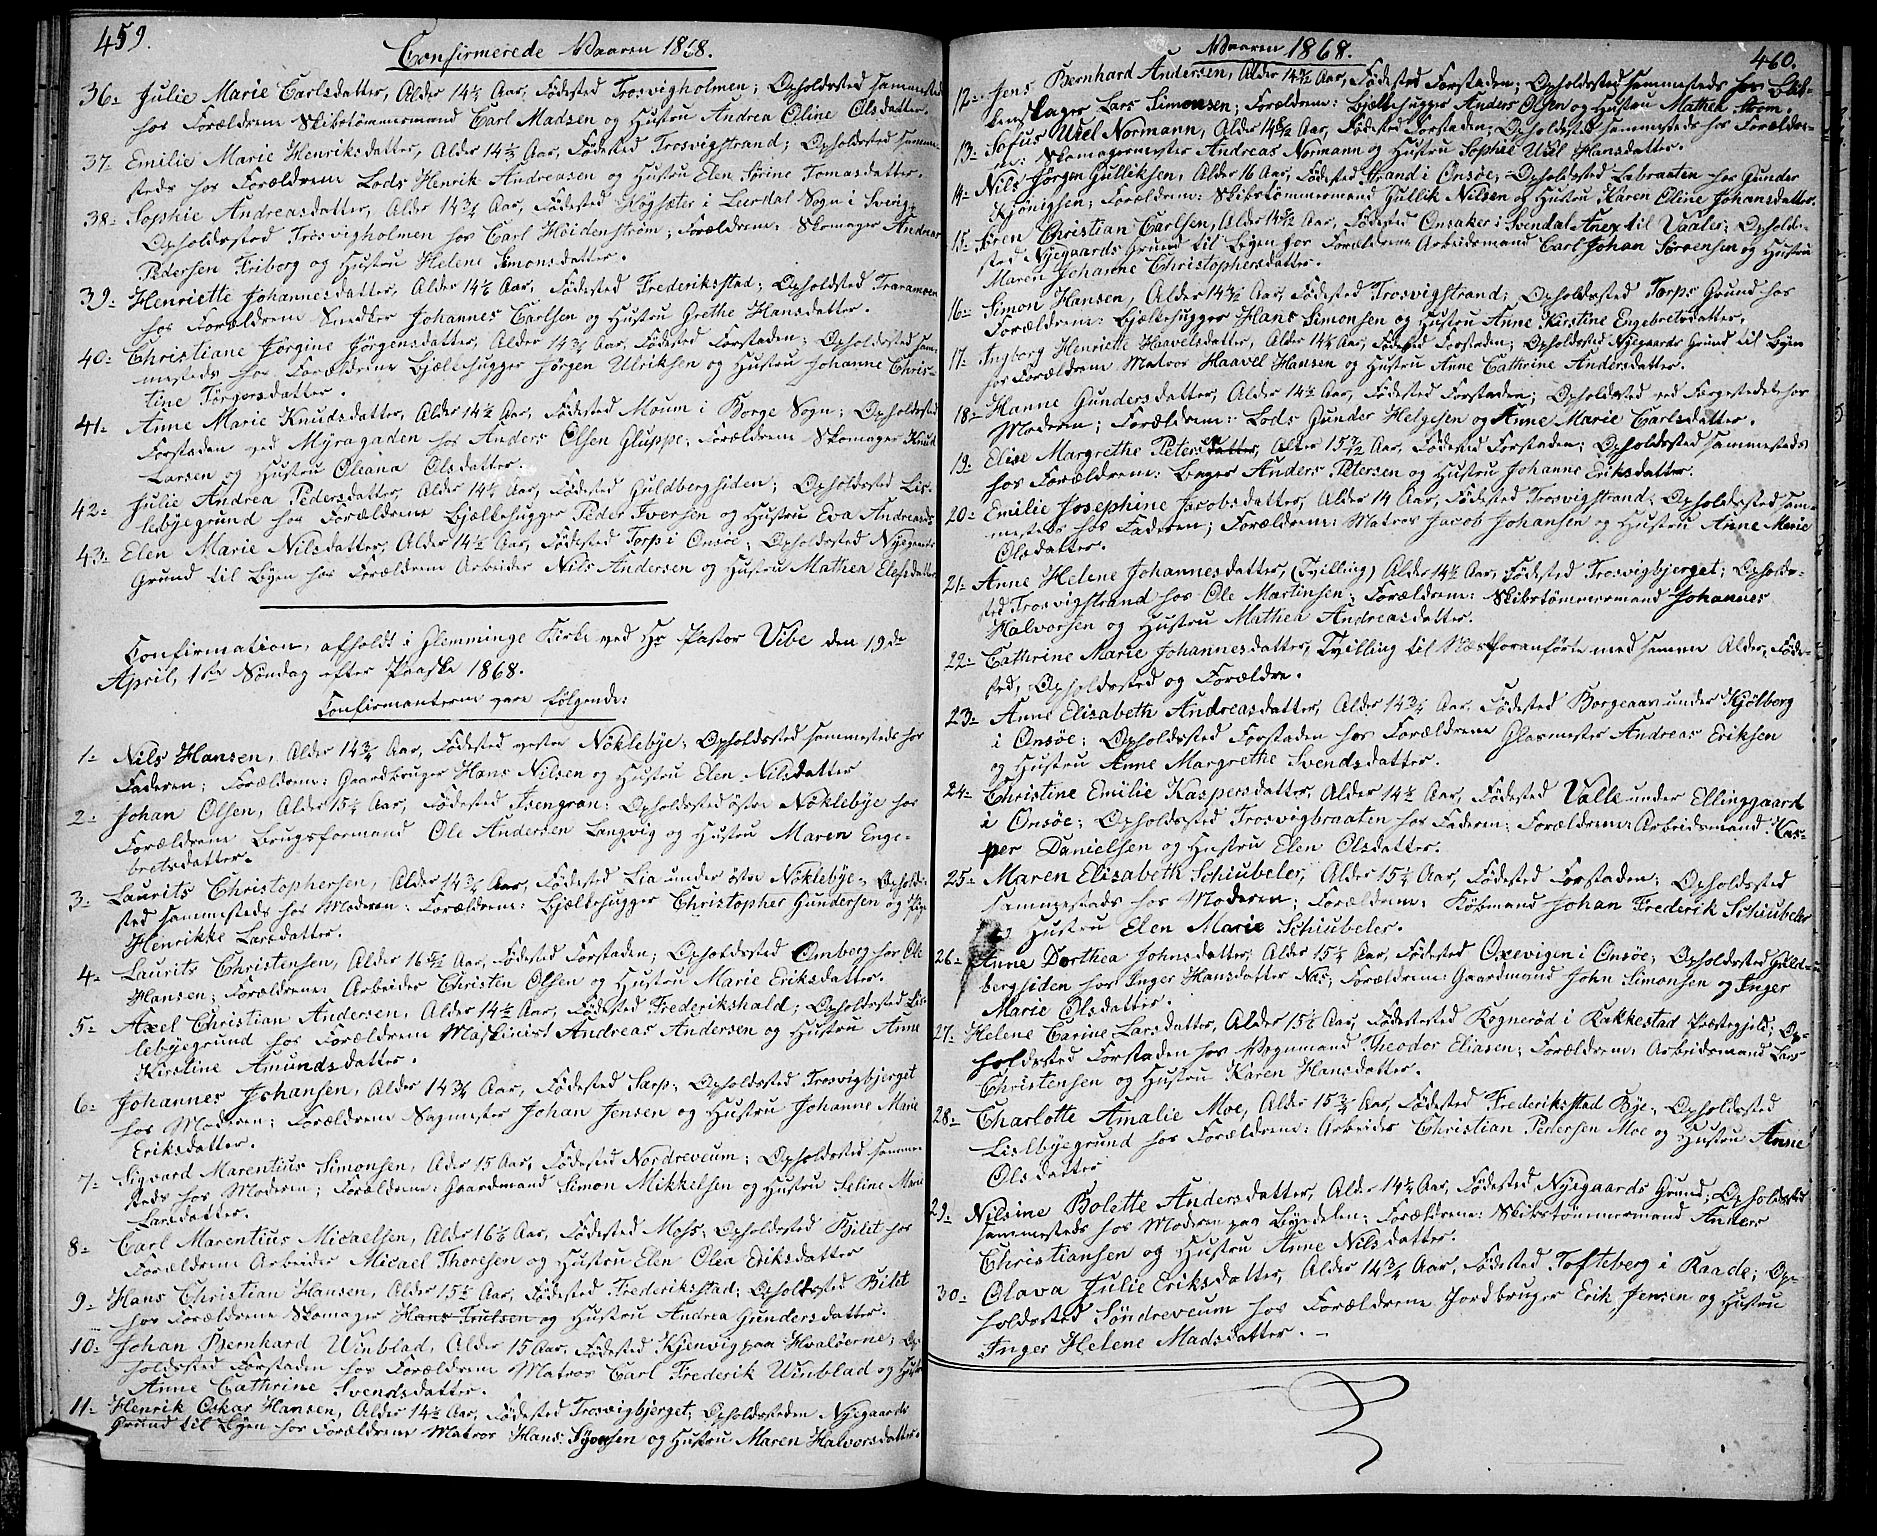 459.
Confirmerede Vaaren 1868.
36= Julie Marie Carlsdatter, Alder 14½ Aar, Fødested Trosvigholmen; Opholdsted sammested
hos Forældrene Skibstømmermand Carl Madsen og Hustru Andrea Oline Olsdatter.
37= Emilie Marie Henriksdatter, Alder 14 Aar, Fødested Trosvigstrand; Opholdsted samme-
steds hos Forældrene Lods Henrik Andreasen og Hustru Elen Sørine Tomasdatter.
38= Sophie Andreasdatter, Alder 14¾ Aar, Fødested Høgsæter i Leerdal Sogn i Sverig;
Opholdssted Trosvigholmen hos Carl Heidenstrøm; Forældrene: Skomager Andreas
Pedersen Friborg og Hustru Helene Simonsdatter.
39= Henriette Johannesdatter, Alder 14 Aar, Fødested Frederikstad; Opholdsted Traramoen
hos Forældrene Snedker Johannes Carlsen og Hustru Grethe Hansdatter.
40= Christiane Jørgine Jørgensdatter, Alder 14¾ Aar, Fødested Forstaden; Opholdsted sam-
mesteds hos Forældrene Bjælkehugger Jørgen Ulriksen og Hustru Johanne Chris-
tine Jørgersdatter.
41= Anne Marie Knudsdatter, Alder 14½ Aar, Fødested Moum i Borge Sogn; Opholdsted
Forstaden ved Myragaden hos Anders Olsen Gluppe; Forældrene Skomager Knud
Larsen og Hustru Oleana Olsdatter.
42= Julie Andrea Pedersdatter, Alder 14 Aar, Fødested Guldbergsiden; Opholdsted Lis-
lebyegrund hos Forældrene Bjælkehugger Peder Iversen og Hustru Eva Andreasd:
43= Elen Marie Nilsdatter, Alder 14½ Aar, Fødested Torp i Onsøe; Opholdsted Nyegaards
Grund til Byen hos Forældrene Arbeider Nils Andersen og Hustru Mathea Elefsdatter
Confirmation, afholdt i Glemminge Kirke ved Hr Pastor Vibe den 19de
April, 1ste Søndag efter Paaske 1868.
Confirmanterne vare følgende:
1= Nils Hansen, Alder 14¾ Aar, Fødested vestre Nøklebye; Opholdssted sammesteds hos
Faderen; Forældrene: Gaardbruger Hans Nilsen og Hustru Elen Nilsdatter
2= Johan Olsen, Alder 15 Aar, Fødested Isengran; Opholdssted østre Nøklebye hos
Forældrene Brugsformand Ole Andersen Langvig og Hustru Maren Enge-
bretsdatter.
3= Laurits Christophersen, Alder 14¾ Aar, Fødested Lia under østre Nøklebye; Ophold-
sted sammesteds hos Moderen; Forældrene: Bjælkehugger Christopher Gundersen og
Henrikke Larsdatter.
4= Laurits Christensen, Alder 16 Aar, Fødested Forstaden; Opholdssted Omberg hos Ole
Hansen; Forældrene: Arbeider Christen Olsen og Hustru Marie Eriksdatter.
5= Axel Christian Andersen, Alder 14½ Aar, Fødested Frederikshald; Opholdssted Lis-
lebyegrund hos Forældrene Maskinist Andreas Andersen og Hustru Anne
Kirstine Amundsdatter.
6= Johannes Johansen, Alder 14¾ Aar, Fødested Sarp; Opholdssted Trosvigbjerget
hos Moderen; Forældrene Sagmester Johan Jensen og Hustru Johanne Marie
Eriksdatter.
7= Sigvard Marentius Simonsen, Alder 15 Aar, Fødested Nordreveum; Opholdssted samme
steds hos Moderen; Forældrene: Gaardmand Simon Mikkelsen og Hustru Seline Marie
Larsdatter.
8= Carl Marentius Micaelsen, Alder 16 Aar, Fødested Moss; Opholdssted Bilet hos
Forældrene Arbeider Micael Thoresen og Hustru Elen Olea Eriksdatter
9= Hans Christian Hansen, Alder 15 Aar, Fødested Frederikstad; Opholdssted Bilet
hos Forældrene Skomager Hans Trulsen og Hustru Andrea Gundersdatter.
10= Johan Bernhard Winblad, Alder 15 Aar, Fødested Kjenvig paa Hvaløerne; Op-
holdssted Forstaden hos Forældrene Matros Carl Frederik Winblad og Hustru
Anne Cathrine Svendsdatter.
11= Henrik Oskar Hansen, Alder 14½ Aar, Fødested Trosvigbjerget; Opholdssteden Nyegaards
Grund til Byen hos Forældrene Matros Hans Syversen og Hustru Maren Halvorsdatter.
Vaaren 1868.
460.
12= Jens Bernhard Andersen, Alder 14 Aar, Fødested Forstaden; Opholdssted sammesteds hos Blik-
kenslager Lars Simonsen; Forældrene: Bjælkehugger Anders Olsen og Hustru Mathea Strøm.
13= Sofus Uxel Normann, Alder 14 Aar, Fødested Forstaden; Opholdssted sammesteds hos Forældre-
ne: Skomagermester Andreas Normann og Hustru Sophie Uxel Hansdatter.
14= Nils Jørgen Gulliksen, Alder 16 Aar, Fødested Strand i Onsøe; Opholdssted Labraaten hos Gunder
Kjønigsen; Forældrene: Skibstømmermand Gullik Nilsen og Hustru Karen Eline Johansdatter.
15= Søren Christian Carlsen, Alder 14 Aar, Fødested Onsaker i Svendal Anex til Vaaler; Opholds-
sted Nyegaards Grund til Byen hos Forældrene Arbeidsmand Carl Johan Sørensen og Hustru
Maren Johanne Christophersdatter.
16= Simon Hansen, Alder 14 Aar, Fødested Trosvigstrand; Opholdssted Torps Grund hos
Forældrene: Bjælkehugger Hans Simonsen og Hustru Anne Kirstine Engebretsdatter.
17= Ingborg Henriette Haavelsdatter, Alder 14 Aar, Fødested Forstaden; Opholdssted Nyegaards Grund til Byen
hos Forældrene Matros Haavel Hansen og Hustru Anne Cathrine Andersdatter.
18= Hanne Gundersdatter, Alder 14½ Aar, Fødested Forstaden; Opholdssted ved Færgestedet hos
Moderen; Forældrene: Lods Gunder Helgesen og Anne Marie Carlsdatter.
19= Elise Margrethe Petersen, Alder 15 Aar, Fødested Forstaden; Opholdssted sammesteds
hos Forældrene: Bager Anders Petersen og Hustru Johanne Eriksdatter.
20= Emilie Josephine Jacobsdatter, Alder 14 Aar, Fødested Trosvigstrand; Opholdssted sam-
mesteds hos Faderen; Forældrene: Matros Jacob Johansen og Hustru Anne Marie
Olsdatter.
21= Anne Helene Johannesdatter, (Tvilling) Alder 14½ Aar, Fødested Trosvigbjerget; Opholds-
sted Trosvigstrand hos Ole Martinsen; Forældrene: Skibstømmermand Johannes
Halvorsen og Hustru Mathea Andreasdatter.
22= Cathrine Marie Johannesdatter, Tvilling til Næstforanførte med samme Alder, Føde-
sted, Opholdssted og Forældre.
23= Anne Elisabeth Andreasdatter, Alder 14¾ Aar, Fødested Borgeaasen under Kjølberg
i Onsøe; Opholdssted Forstaden hos Forældrene Glasmester Andreas Eriksen
og Hustru Anne Margrethe Svendsdatter.
24= Christine Emilie Kaspersdatter, Alder 14½ Aar, Fødested Valle under Ellinggaard
i Onsøe; Opholdssted Trosvigbraaten hos Faderen; Forældrene: Arbeidsmand Kas-
per Danielsen og Hustru Elen Olsdatter.
25= Maren Elisabeth Schiubeler, Alder 15 Aar, Fødested Forstaden; Opholdssted
sammesteds hos Moderen; Forældrene: Kjøbmand Johan Frederik Schiubeler
og Hustru Elen Marie Schiubeler.
26= Anne Dorthea Johnsdatter, Alder 15 Aar, Fødested Oxevigen i Onsøe; Opholdssted Guld-
bergsiden hos Inger Hansdatter Næs; Forældrene: Gaardmand John Simonsen og Inger
Marie Olsdatter.
27= Helene Carine Larsdatter, Alder 15 Aar, Fødestested Rognerød i Rakkestad Præstegjeld; Op-
holdssted Forstaden hos Vognmand Theodor Eliasen; Forældrene: Arbeidsmand Lars
Christensen og Hustru Karen Hansdatter.
28= Charlotte Amalie Moe, Alder 15¾ Aar, Fødested Frederikstad Bye; Opholdssted
Lislbyegrund hos Forældrene: Arbeider Christian Pedersen Moe og Hustru Anne
Olsdatter
29= Nilsine Bolette Andersdatter, Alder 14½ Aar, Fødested Nyegaards Grund; Opholdssted
sammesteds hos Moderen paa Byedelen; Forældrene: Skibstømmermand Anders
Christiansen og Hustru Anne Nilsdatter.
30= Olava Julie Eriksdatter, Alder 14¾ Aar, Fødested Tofteberg i Raade; Op-
holdssted Søndreveum hos Forældrene Jordbruger Erik Jensen og Hustru
Inger Helene Madsdatter.